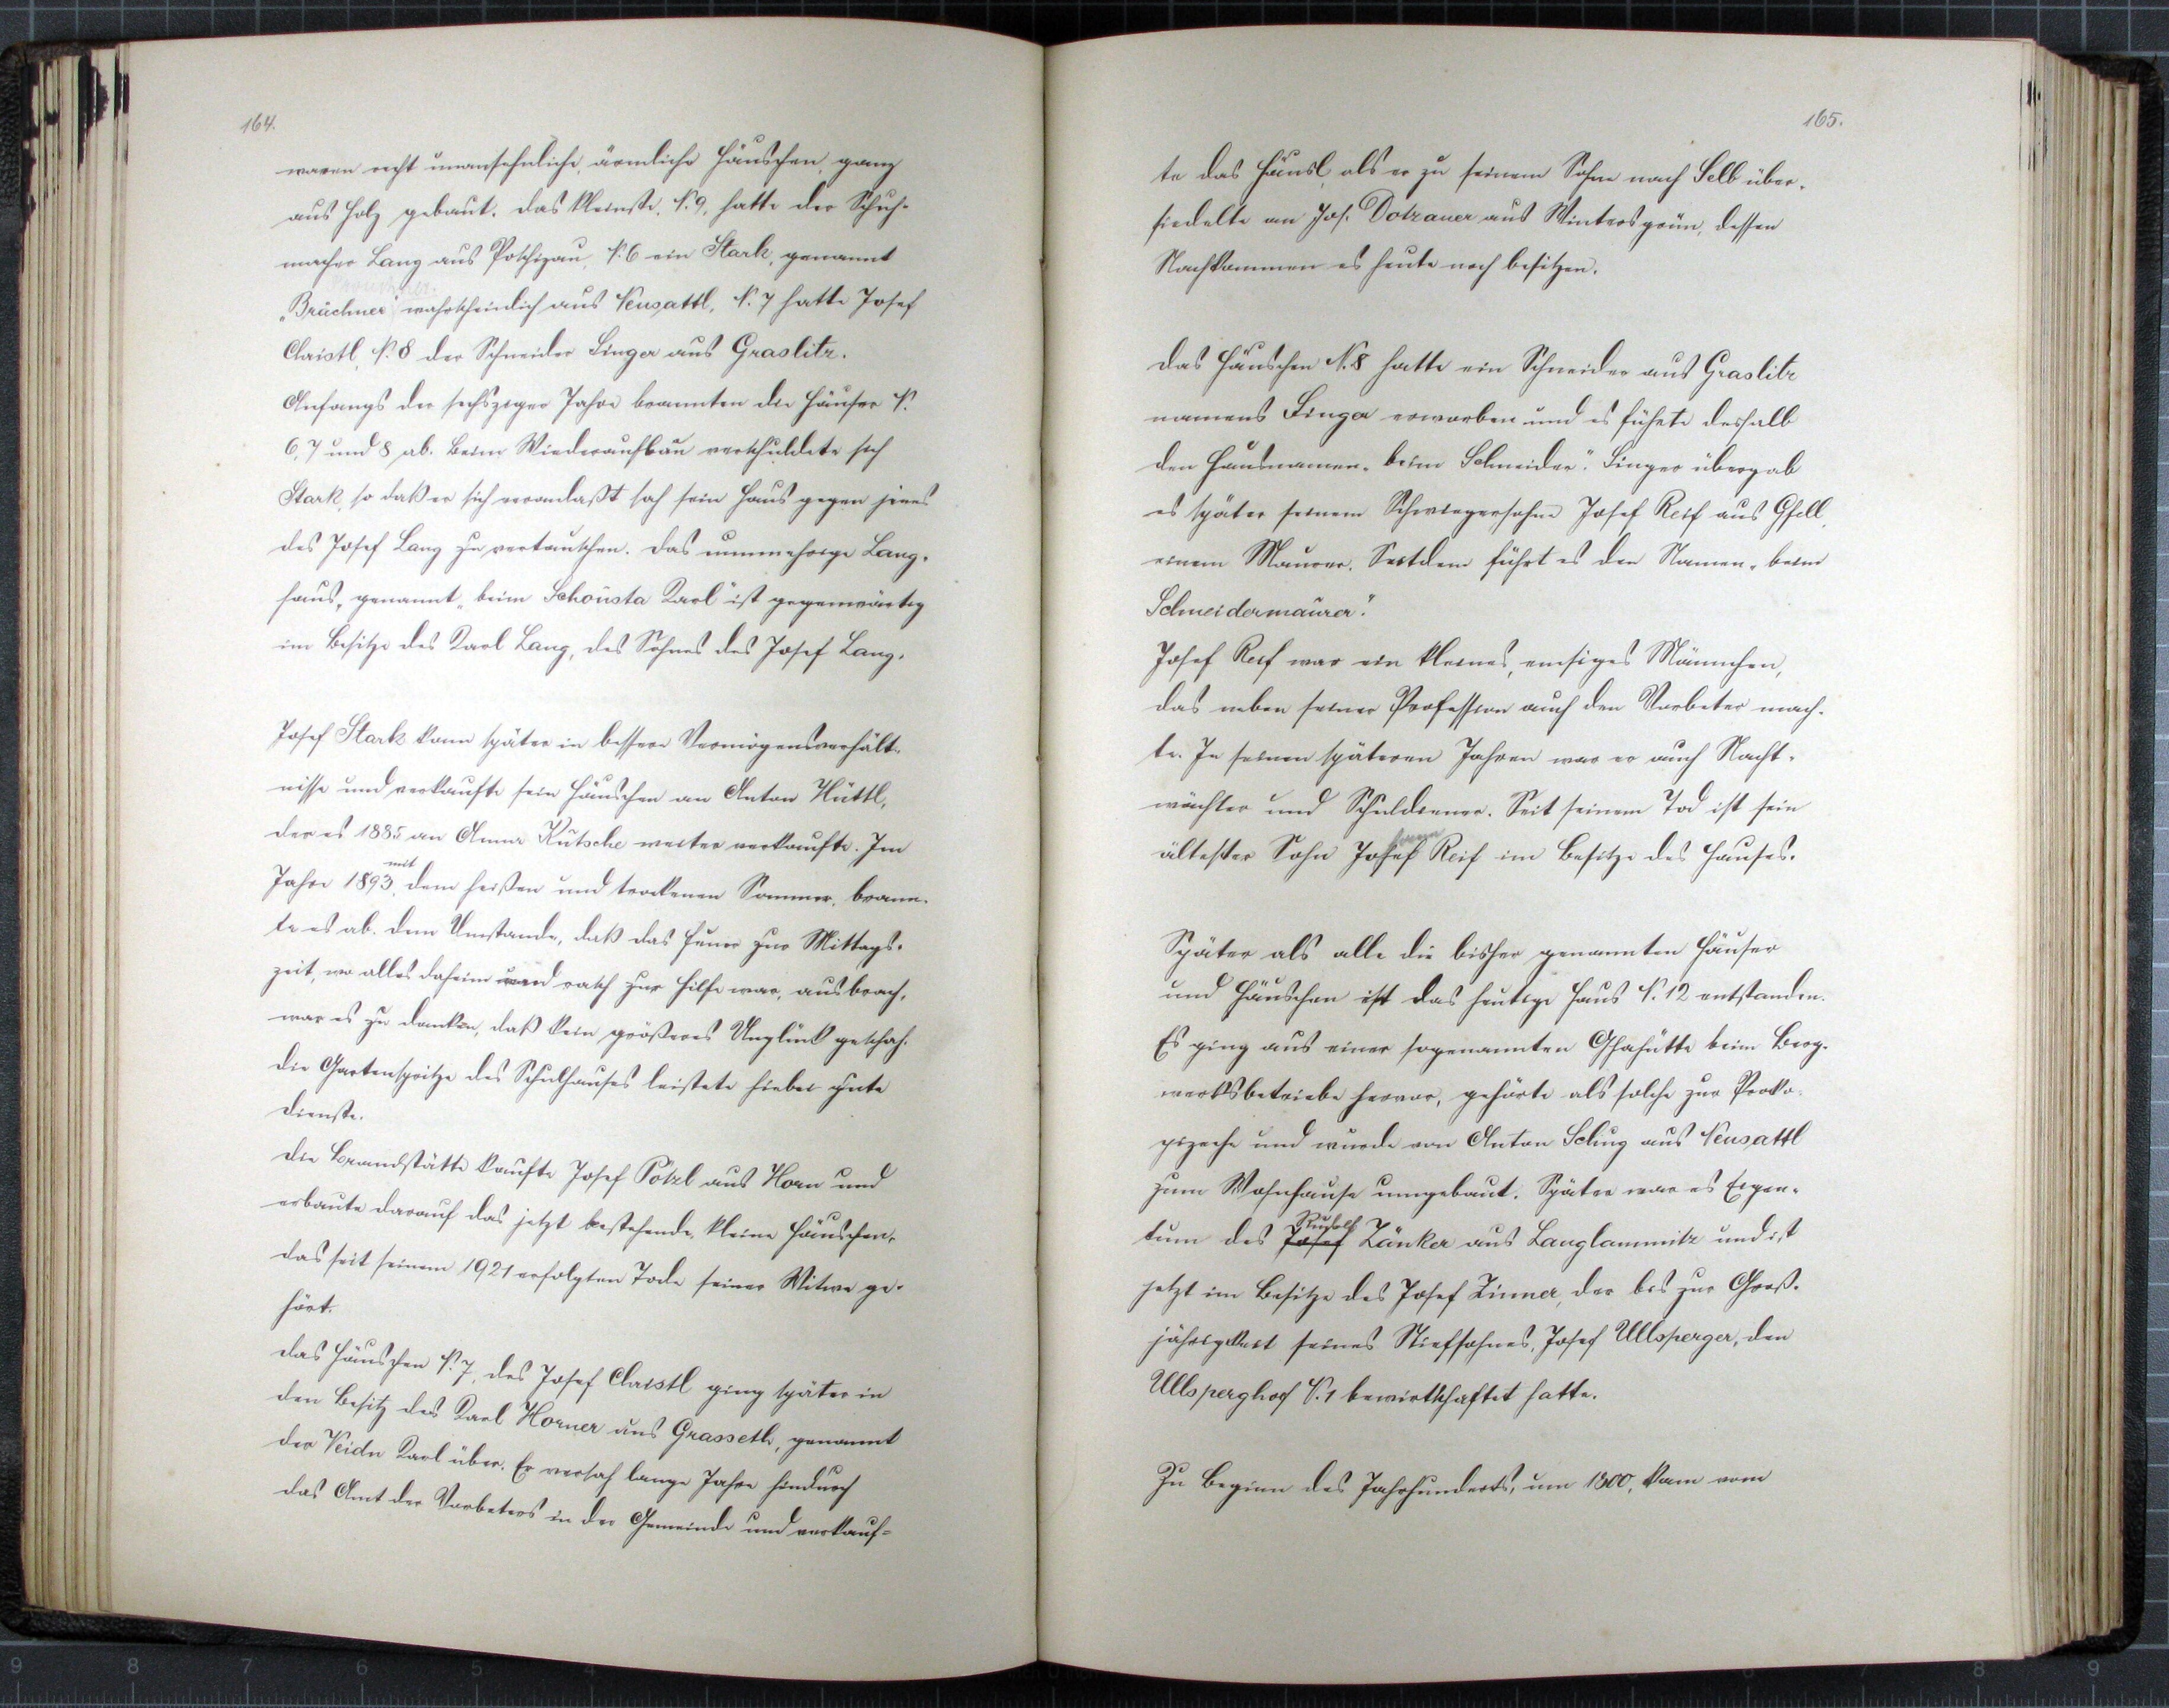 164.
waren recht unansehnliche, ärmliche Häuschen, ganz
aus Holz gebaut. Das kleinste, N. 9, hatte der Schuh-
macher Lang aus Poschizau, N. 6 ein Stark, genannt
„Brückner" wahrscheinlich aus Neusattl, N. 7 hatte Josef
Christl, N. 8 der Schneider Singer aus Graslitz.
Anfangs der sechsziger Jahre brannten die Häuser N.
6, 7 und 8 ab. Beim Wiederaufbau verschuldete sich
Stark, so daß er sich veranlaßt sah sein Haus gegen jenes
des Josef Lang zu vertauschen. Das nunmehrige Lang-
haus, genannt „beim Schousta Karl" ist gegenwärtig
im Besitze des Karl Lang, des Sohnes des Josef Lang.
Josef Stark kam später in bessere Vermögensverhält-
nisse und verkaufte sein Häuschen an Anton Hüttl,
der es 1885 an Anna Kutsche weiter verkaufte. Im
Jahre 1893, mit dem heißen und trockenen Sommer, brann-
te es ab. Dem Umstande, daß das Feuer zur Mittags-
zeit, wo alles daheim und rasch zur Hilfe war, ausbrach,
war es zu danken, daß kein größeres Unglück geschah.
Die Gartenspritze des Schulhauses leistete hiebei gute
Dienste.
Die Brandstätte kaufte Josef Pötzl aus Horn und
erbaute darauf das jetzt bestehende, kleine Häuschen,
das seit seinem 1921 erfolgten Tode seiner Witwe ge-
hört.
Das Häuschen N. 7, des Josef Christl ging später in
den Besitz des Karl Horner aus Grasseth, genannt
der Veidn Karl über. Er versah lange Jahre hindurch
das Amt des Vorbeters in der Gemeinde und verkauf-
165.
te das Häusl, als er zu seinem Sohne nach Selb über-
siedelte an Jos. Dotzauer aus Wintersgrün, dessen
Nachkommen es heute noch besitzen.
Das Häuschen N. 8 hatte ein Schneider aus Graslitz
namens Singer erworben und es führte deshalb
den Hausnamen „beim Schneider". Singer übergab
es später seinem Schwiegersohne Josef Reif aus Gfell,
einem Maurer. Seitdem führt es den Namen „beim
Schneidermaurer".
Josef Reif war ein kleines, emsiges Männchen,
das neben seiner Profession auch den Vorbeter mach-
te. In seinen späteren Jahren war er auch Nacht-
wächter und Schuldiener. Seit seinem Tod ist sein
ältester Sohn Josef Reif im Besitze des Hauses.
Später als alle die bisher genannten Häuser
und Häuschen ist das heutige Haus N. 12 entstanden.
Es ging aus einer sogenannten Gfahütte beim Berg-
werksbetriebe hervor, gehörte als solche zur Proko-
pizeche und wurde von Anton Schug aus Neusattl
zum Wohnhause umgebaut. Später war es Eigen-
tum des Josef Rudolf Zänker aus Langlammitz und ist
jetzt im Besitze des Josef Zinner, der bis zur Groß-
jährigkeit seines Stiefsohnes, Josef Ullsperger, den
Ullsperghof N. 1 bewirtschaftet hatte.
Zu Beginn des Jahrhunderts, um 1800, kam vom